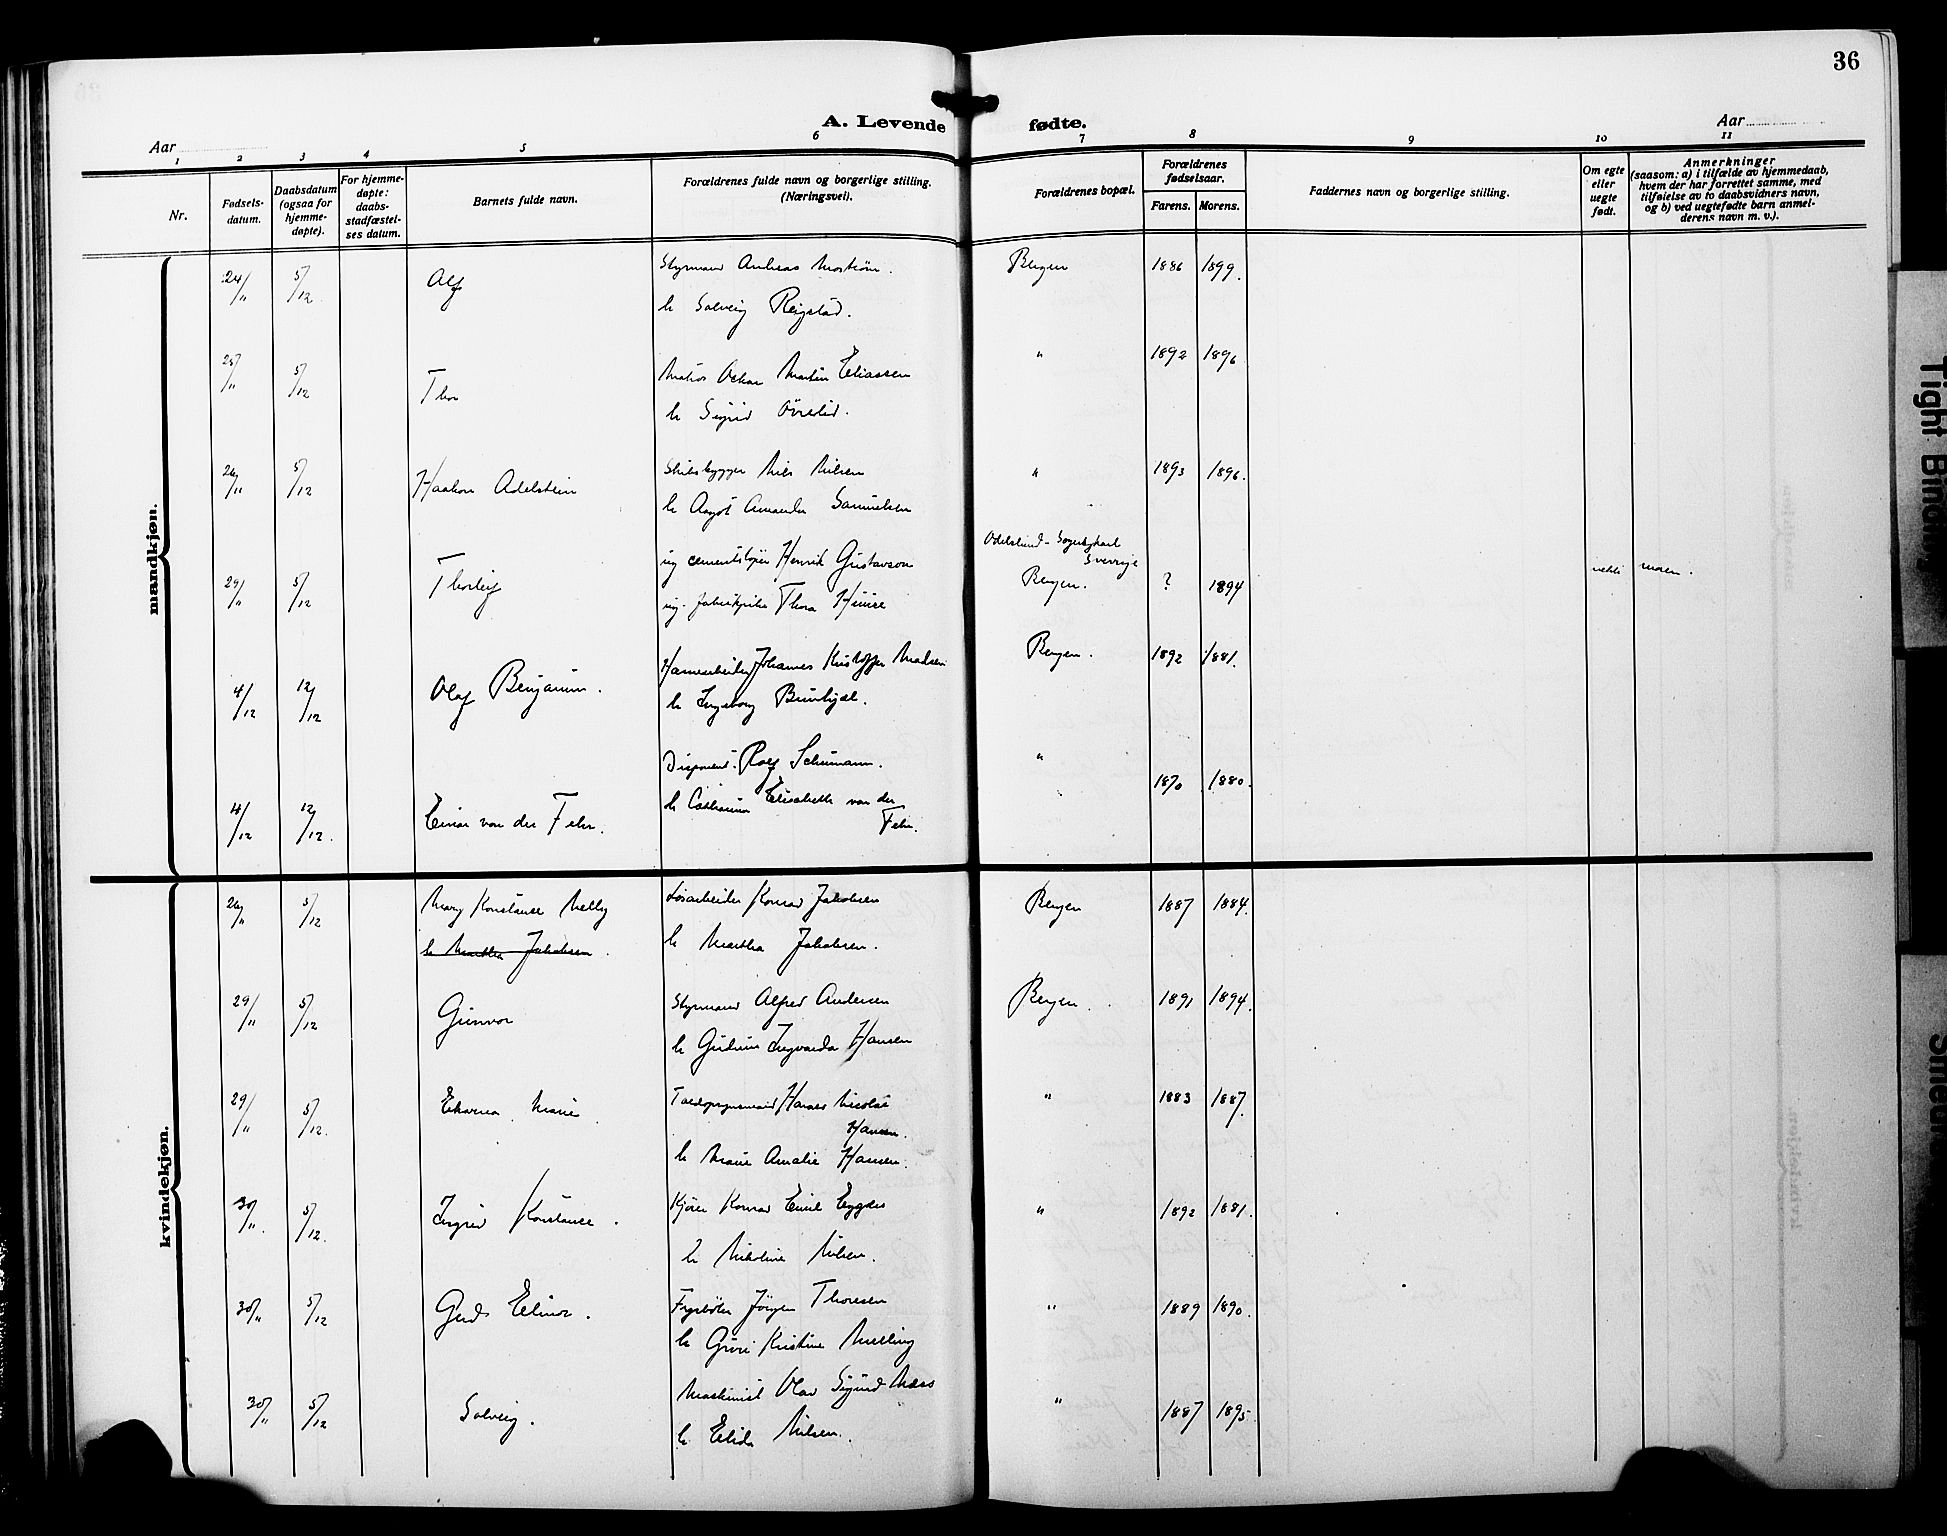 36
A. Levende fødte.
Aar
Aar
1 2 3 4 5 6 7 8 9 10 11
Nr.
Fødsels-
datum.
Daabsdatum
(ogsaa for
hjemme-
døpte).
For hjemme-
døpte:
daabs-
stadfæstel-
ses datum.
Barnets fulde navn.
Forældrenes fulde navn og borgerlige stilling.
(Næringsvei).
Forældrenes bopæl.
Forældrenes
fødselsaar.
Farens. Morens.
Faddernes navn og borgerlige stilling.
Om egte
eller
uegte
født.
Anmerkninger
(saasom: a) i tilfælde av hjemmedaab,
hvem der har forrettet samme, med
tilføielse av to daabsvidners navn,
og b) ved uegtefødte barn anmel-
derens navn m. v.).
mandkjøn.
24/11 5/12 Alf Styrmand Andreas Bergen 1886 1899.
h. Solveig Reigstad.
25/11 5/12 Thor Matros Oskar Martin Eliassen " 1892 1896
h. Sigrid Övrelid.
26/11 5/12 Haakon Adelstein Skibsbygger Nils Nilsen " 1893 1896.
h. Aagot Amanda Samuelsen
Sverrige
29/11 5/12 Thorleif ug cementstöper Henrik Gustavson Bergen. ? 1894 moren.
ug. Thora
4/12 12/12 Olaf Benjamin. Havnearbeider Johannes Kristoffer Madsen Bergen. 1892 1881.
h. Ingeborg
4/12 12/12. Einar von der Fehr. Disponent. Rolf Schumann. " 1870 1880.
h. Catharina Elisabeth von der
Fehr.
kvindekjøn.
26/11 5/12 Mary Konstanse Nelly Løsarbeider Konrad Jakobsen Bergen 1887 1884.
h. Martha Jakobsen. h. Martha Jakobsen.
29/11 5/12 Gunvor Styrmand Alfred Andersen Bergen. 1891 1894.
h. Gudrun Ingvarda Hansen
29/11 5/12. Marie Hansen. " 1883 1887.
h. Marie Amalie Hansen.
30/11. 5/12. Ingrid Konstanse. Konrad Emil " 1892 1881.
h. Nikoline Nilsen.
30/11 5/12 Elinor. Fyrbøter Jörgen Thoresen " 1889 1890.
h. Guri Kristine Melling
30/11 5/12 Solveig. Maskinist Olav Sigurd Næss " 1887 1895
h. Elida Nilsen.
Tight Bindi